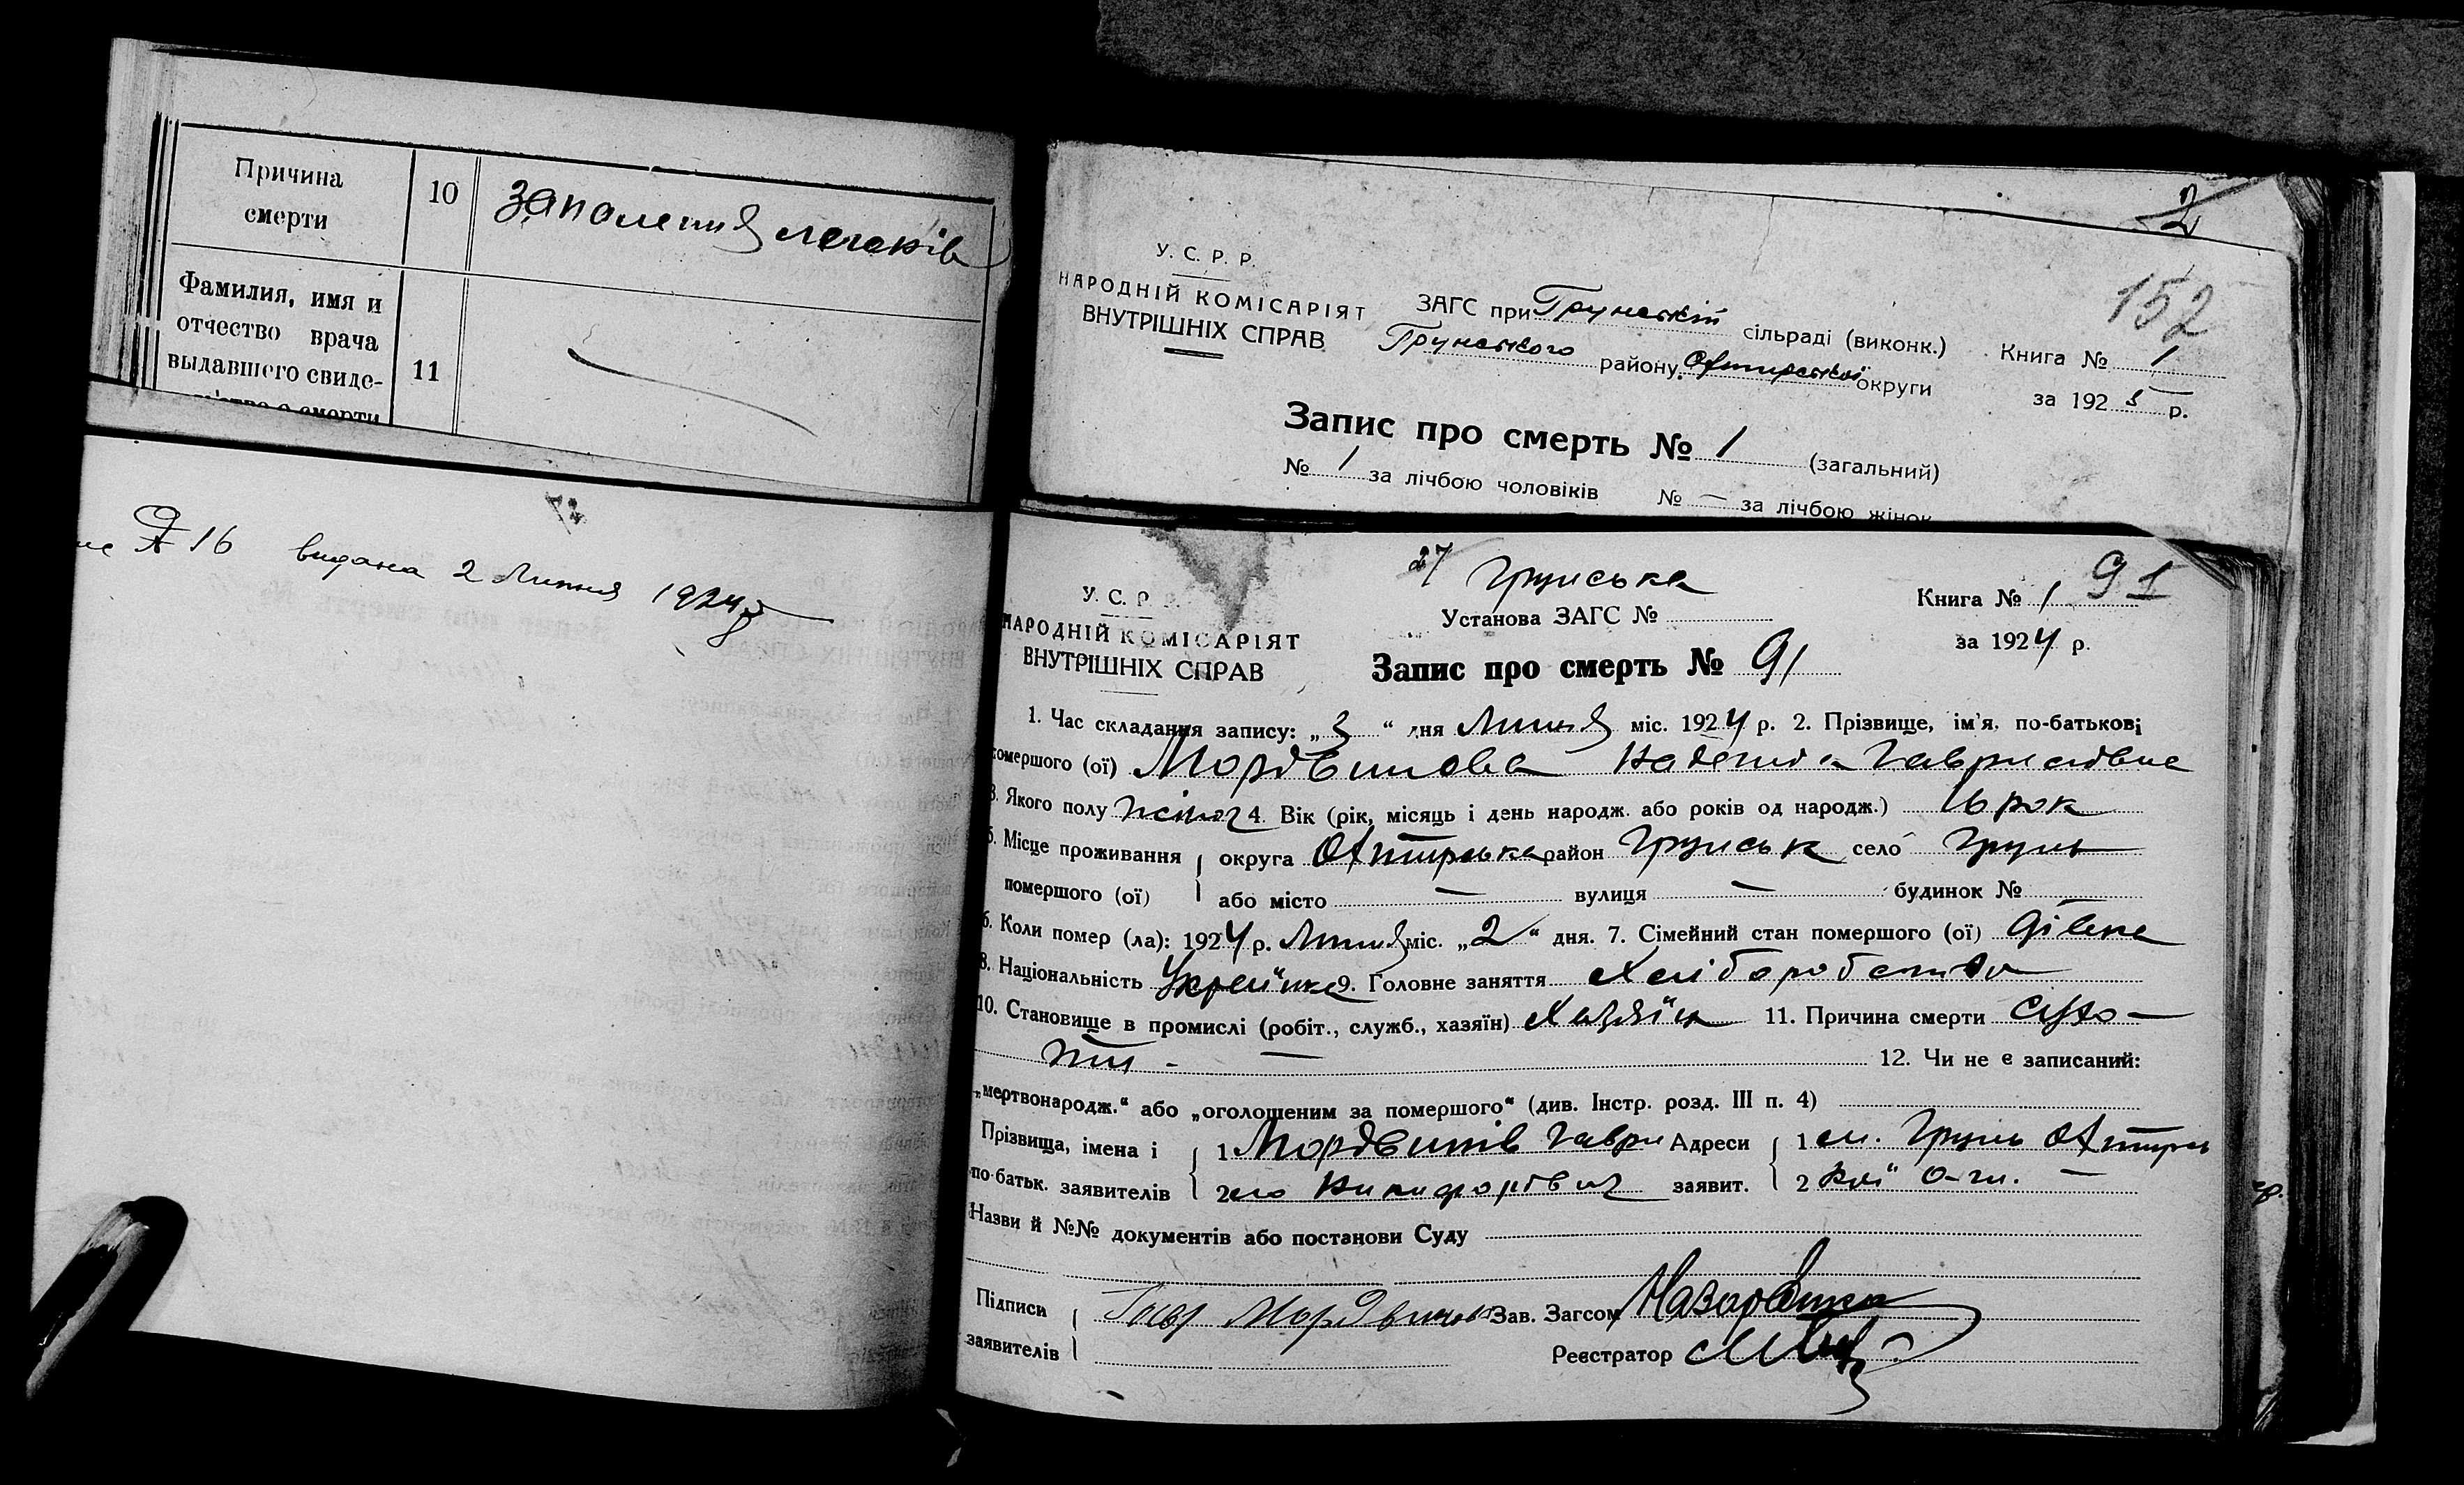 Причина
смерти
10
запаления легенів
Фамилия, имя и
отчество врача
выдавшего свиде-
11
№ 16 видана 2 Липня 1924 р
2
152
У. С. Р. Р.
НАРОДНІЙ КОМІСАРІЯТ
ВНУТРІШНІХ СПРАВ
ЗАГС при Грунській сільраді (виконк.)
Грунського району Охтирської округи
Книга № 1
за 192 5 р.
Запис про смерть № 1 (загальний)
№ 1 за лічбою чоловіків № — за лічбою жінок
27
Грунська
91
У. С. Р. Р.
НАРОДНІЙ КОМІСАРІЯТ
ВНУТРІШНІХ СПРАВ
Установа ЗАГС №
Книга № 1
за 1924 р.
Запис про смерть № 91
1. Час складання запису: „3“ дня Липня міс. 1924 р. 2. Прізвище, ім'я, по-батькові
помершого (ої) Мордвинова Надежда Гавриловна
3. Якого полу жіноч 4. Вік (рік, місяць і день народж. або років од народж.) 16 рок
5. Місце проживання округа Охтирська район Грунськ село Грунь
помершого (ої) або місто — вулиця — будинок №
6. Коли помер (ла): 1924 р. Липня міс. „2“ дня. 7. Сімейний стан помершого (ої) Дівка
8. Національність Українка 9. Головне заняття Хліборобство
10. Становище в промислі (робіт., служб., хазяїн) Хазяїн 11. Причина смерти Сухо-
ти - — 12. Чи не є записаний:
„мертвонародж.“ або „оголошеним за помершого“ (див. Інстр. розд. III п. 4)
Прізвища, імена і 1 Мордвинів Гаври Адреси 1 см. Грунь Охтирсь
по-батьк. заявителів 2 ло Никифорівич заявит. 2 кої о-ги. —
Назви й №№ документів або постанови Суду
Підписи Гавр Мордвинов Зав. Загсом
заявителів Реєстратор